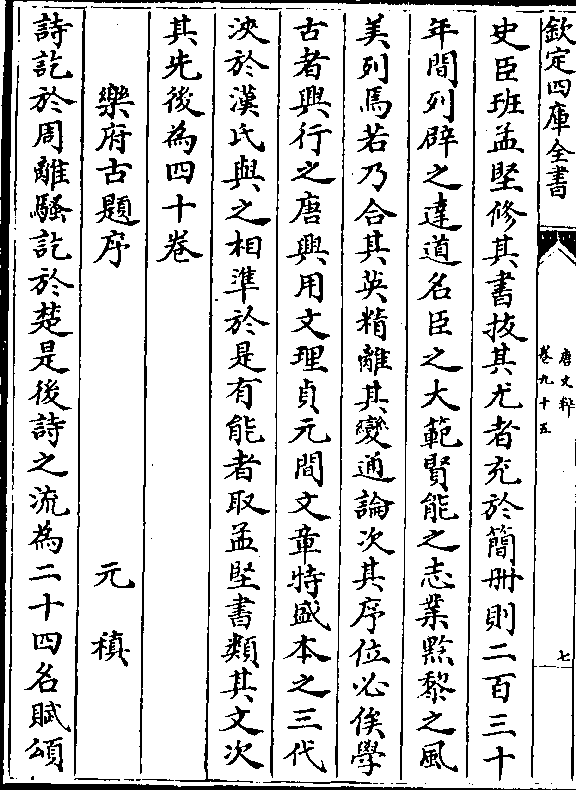 欽定四庫全書
唐文粹
卷九十五
七
史臣班孟堅修其書拔其尤者充於簡冊則二百三十
年間列辟之達道名臣之大範賢能之志業黔黎之風
美列焉若乃合其英精離其變通論次其序位必俟學
古者興行之唐興用文理貞元間文章特盛本之三代
浹於漢氏與之相準於是有能者取孟堅書類其文次
其先後為四十卷
樂府古題序 元稹
詩訖於周離騷訖於楚是後詩之流為二十四名賦頌